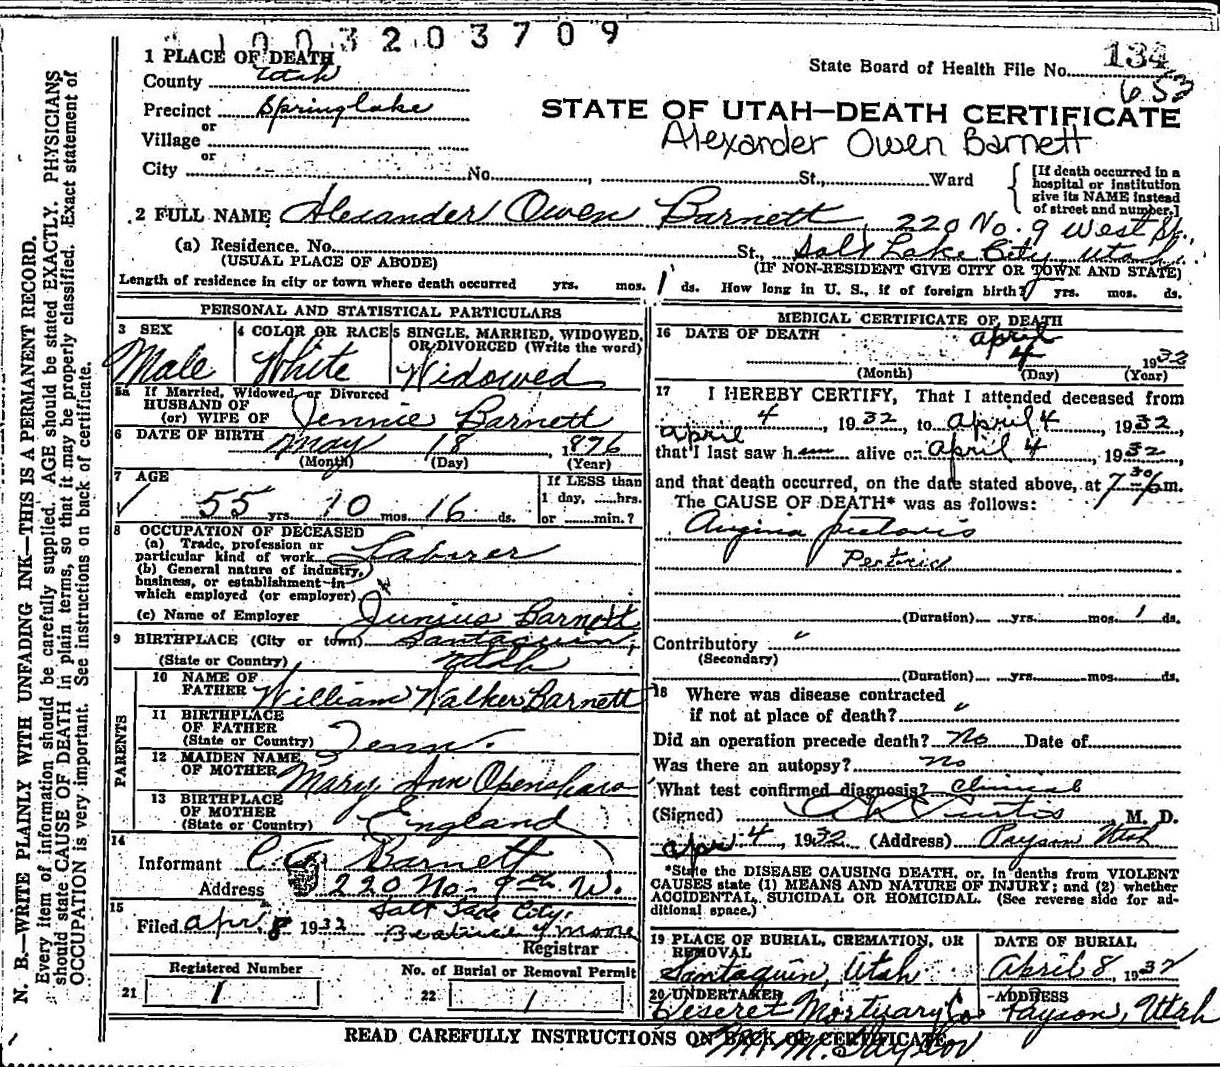 1003203709
1 PLACE OF DEATH
County Utah
State Board of Health File No. 134
653
Precinct Springlake
STATE OF UTAH—DEATH CERTIFICATE
or
Village
Alexander Owen Barnett
or
City No. St., Ward
[If death occurred in a hospital or institution give its NAME instead of street and number.]
2 FULL NAME Alexander Owen Barnett, 220 No. 9 West St.,
(a) Residence. No. St., Salt Lake City, Utah.
(USUAL PLACE OF ABODE) (IF NON-RESIDENT GIVE CITY OR TOWN AND STATE)
Length of residence in city or town where death occurred yrs. mos. 1 ds. How long in U. S., if of foreign birth? yrs. mos. ds.
PERSONAL AND STATISTICAL PARTICULARS
3 SEX
Male
4 COLOR OR RACE
White
5 SINGLE, MARRIED, WIDOWED, OR DIVORCED (Write the word)
Widowed
5a If Married, Widowed, or Divorced
HUSBAND OF
(or) WIFE OF Jennie Barnett
6 DATE OF BIRTH May 18, 1876
(Month) (Day) (Year)
7 AGE
55 yrs. 10 mos. 16 ds.
If LESS than
1 day, hrs.
or min.?
8 OCCUPATION OF DECEASED
(a) Trade, profession or
particular kind of work Laborer
(b) General nature of industry,
business, or establishment in
which employed (or employer)
(c) Name of Employer Junius Barnett
9 BIRTHPLACE (City or town) Santaquin,
(State or Country) Utah
PARENTS
10 NAME OF
FATHER William Walker Barnett
11 BIRTHPLACE
OF FATHER
(State or Country) Tenn.
12 MAIDEN NAME
OF MOTHER Mary Ann Openshaw
13 BIRTHPLACE
OF MOTHER
(State or Country) England
14
Informant Barnett
Address 220 No. 9th W.
Salt Lake City.
15
Filed Apr. 8 1932 Beatrice Moore
Registrar
Registered Number
21 1
No. of Burial or Removal Permit
22 1
MEDICAL CERTIFICATE OF DEATH
16 DATE OF DEATH April
4 1932
(Month) (Day) (Year)
17 I HEREBY CERTIFY, That I attended deceased from
April 4, 1932, to April 4, 1932,
that I last saw h alive on April 4, 1932,
and that death occurred, on the date stated above, at 7 30 m.
The CAUSE OF DEATH* was as follows:
Angina pectoris
(Duration) yrs. mos. 1 ds.
Contributory "
(Secondary)
(Duration) yrs. mos. ds.
18 Where was disease contracted
if not at place of death? "
Did an operation precede death? No Date of
Was there an autopsy? No
What test confirmed diagnosis? Clinical
(Signed) Curtis, M. D.
Apr 4, 1932 (Address) Payson Utah
*State the DISEASE CAUSING DEATH, or, in deaths from VIOLENT
CAUSES state (1) MEANS AND NATURE OF INJURY; and (2) whether
ACCIDENTAL, SUICIDAL OR HOMICIDAL. (See reverse side for ad-
ditional space.)
19 PLACE OF BURIAL, CREMATION, OR REMOVAL
Santaquin, Utah
DATE OF BURIAL
April 8, 1932
20 UNDERTAKER
Deseret Mortuary Co
ADDRESS
Payson, Utah
READ CAREFULLY INSTRUCTIONS ON BACK OF CERTIFICATE
N. B.—WRITE PLAINLY WITH UNFADING INK—THIS IS A PERMANENT RECORD.
Every item of information should be carefully supplied. AGE should be stated EXACTLY. PHYSICIANS
should state CAUSE OF DEATH in plain terms, so that it may be properly classified. Exact statement of
OCCUPATION is very important. See instructions on back of certificate.